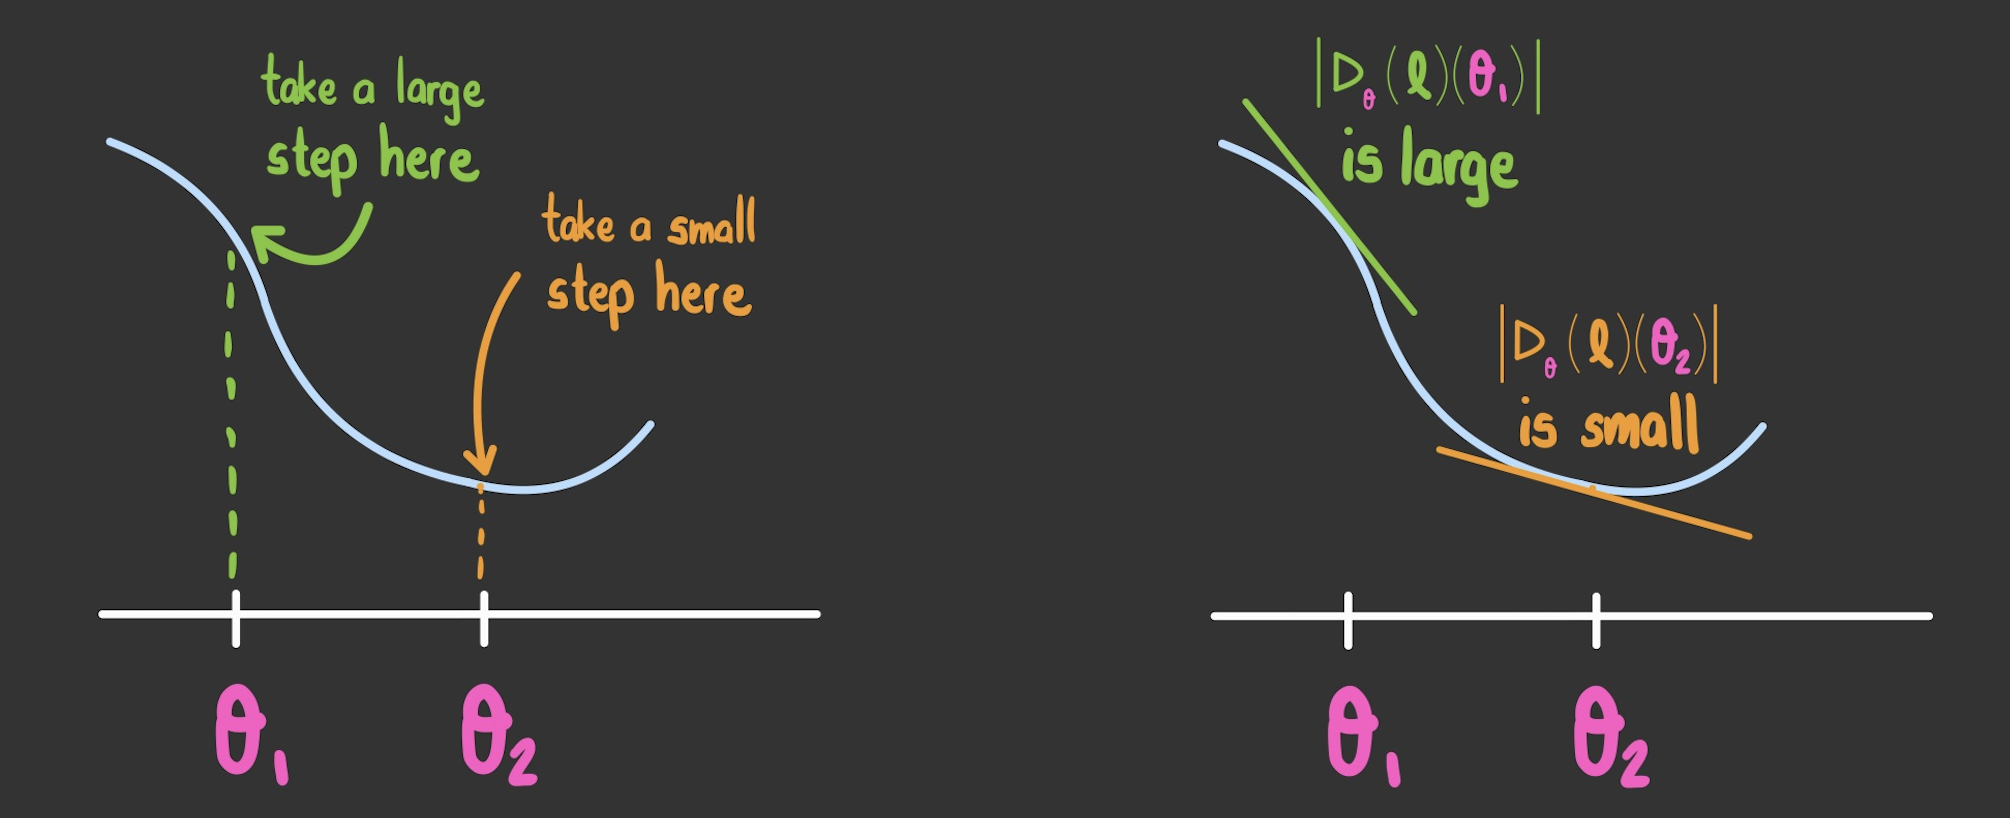 take a large
step here
take a small
step here
θ₁
θ₂
|D_θ(ℓ)(θ₁)|
is large
|D_θ(ℓ)(θ₂)|
is small
θ₁
θ₂